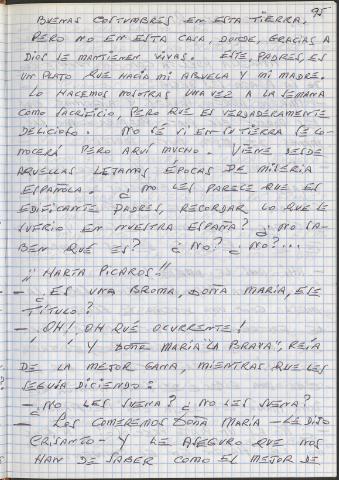 95
BUENAS COSTUMBRES EN ESTA TIERRA.
PERO NO EN ESTA CASA, DONDE, GRACIAS A
DIOS SE MANTIENEN VIVAS. ESTE, PADRES, ES
UN PLATO QUE HACÍA MI ABUELA Y MI MADRE.
LO HACEMOS NOSOTRAS UNA VEZ A LA SEMANA
COMO SACRIFICIO, PERO QUE ES VERDADERAMENTE
DELICIOSO. NO SÉ SI EN SU TIERRA SE CO-
NOCERÁ PERO AQUÍ MUCHO. VIENE DESDE
AQUELLAS LEJANAS ÉPOCAS DE MISERIA
ESPAÑOLA. ¿NO LES PARECE QUE ES
EDIFICANTE PADRES, RECORDAR LO QUE SE
SUFRIO EN NUESTRA ESPAÑA? ¿NO SA-
BEN QUÉ ES? ¿NO? ¿NO?...
¡¡HARTA PICAROS!!
- ¿ES UNA BROMA, DOÑA MARÍA, ESE
TÍTULO?
- ¡OH!, ¡OH QUÉ OCURRENTE!
Y DOÑA MARIA "LA BRAVA", REÍA
DE LA MEJOR GANA, MIENTRAS QUE LES
SEGUÍA DICIENDO:
- ¿NO LES SUENA? ¿NO LES SUENA?
- LOS COMEREMOS DOÑA MARÍA - LE DIJO
CRISANTO - Y LE ASEGURO QUE NOS
HAN DE SABER COMO EL MEJOR DE